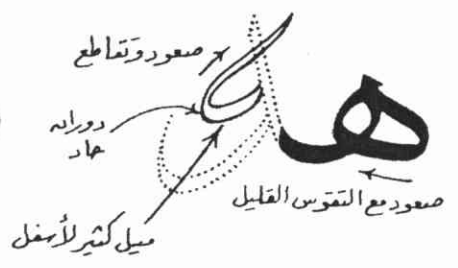 صعود وتقاطع
دوران
حاد
هد
صعود مع التقوس القليل
ميل كثير لأسفل